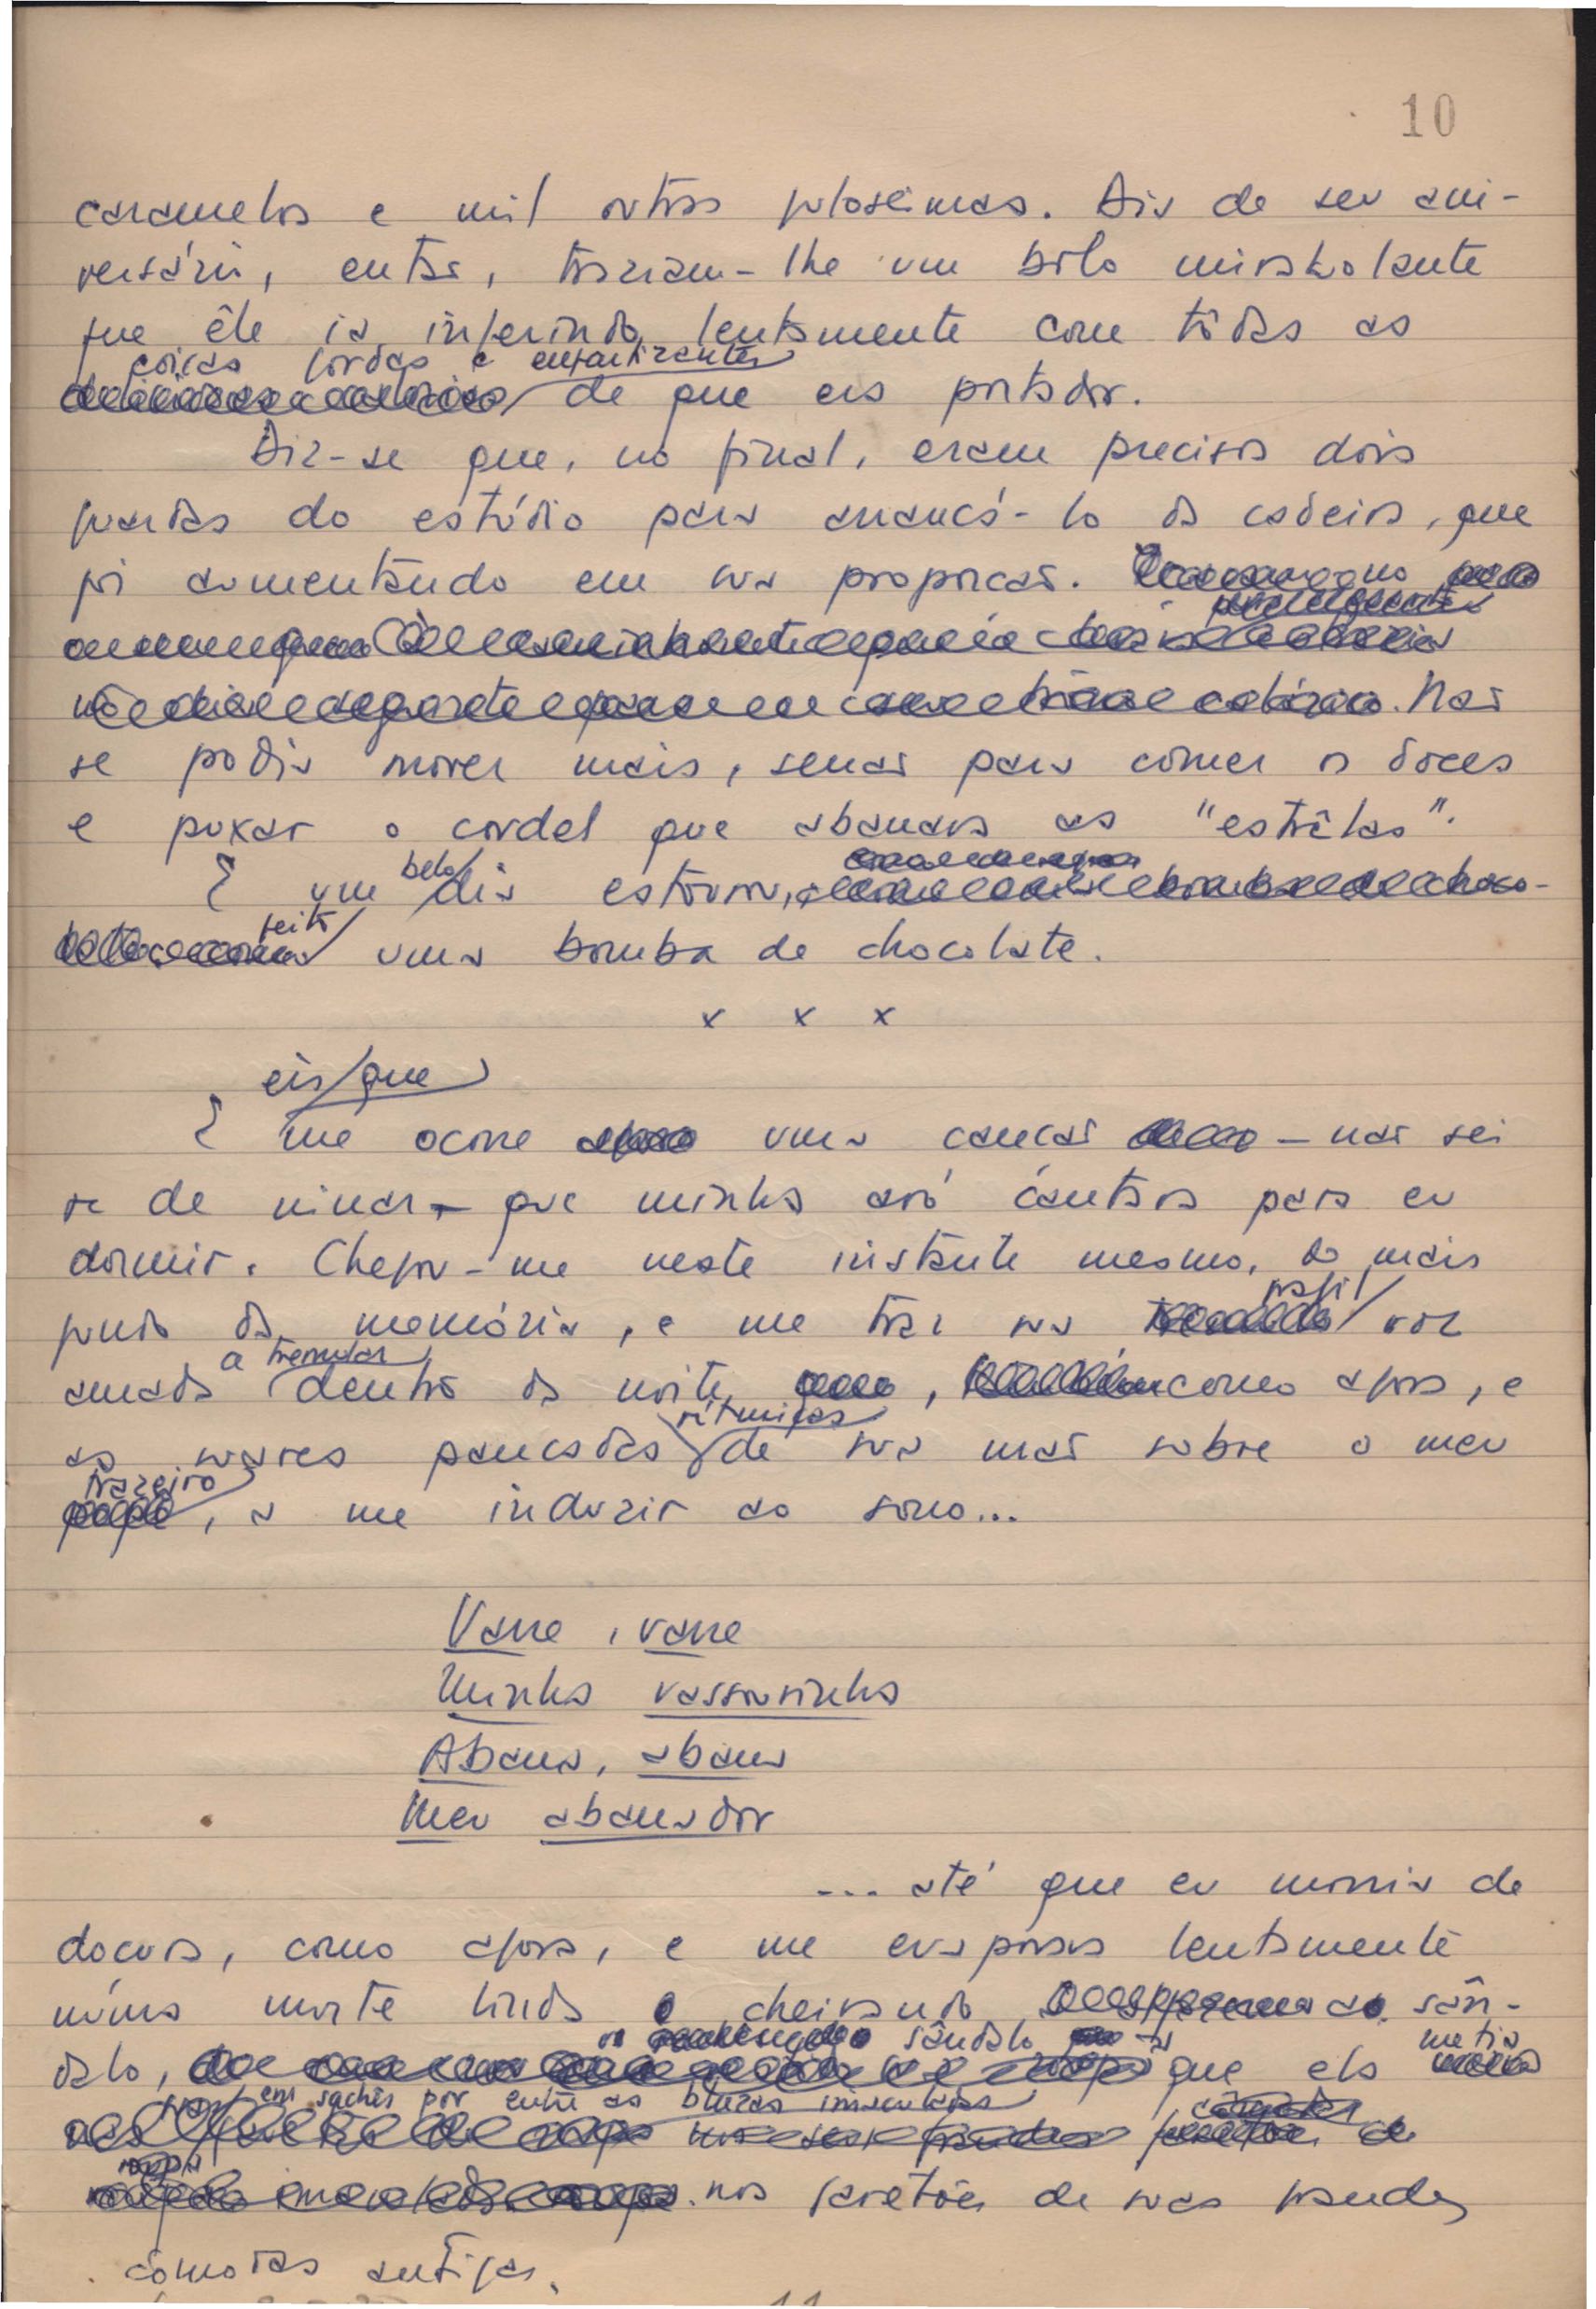 10
caramelos e mil outras guloseimas. Dia de seu ani-
versário, então, traziam-lhe um bolo mirabolante
que êle ia ingerindo lentamente com tôdas as
coisas gordas e
de que era portador.
Diz-se que, no final, eram precisos dois
guardas do estúdio para arrancá-lo da cadeira, que
foi aumentando em sua proporção.
Não
se podia mover mais, senão para comer os doces
e puxar o cordel que abanava as "estrêlas".
E um belo dia estourou,
feito uma bomba de chocolate.
x x x
eis que
E me ocorre uma canção - não sei
se de ninar - que minha avó cantava para eu
dormir. Chegou-me neste instante mesmo, do mais
fundo da memória, e me traz sua frágil voz
amada a tremular dentro da noite, como agora, e
as suaves pancadas rítmicas de sua mão sobre o meu
trazeiro, a me induzir ao sono...
Varre, varre
Minha vassourinha
Abana, abana
Meu abanador
... até que eu morria de
doçura, como agora, e me evaporava lentamente
numa morte linda cheirando a sân-
dalo, o sândalo que ela metia
em sachês por entre as blusas imaculadas
nos gavetões de suas grandes
cômodas antigas.
11